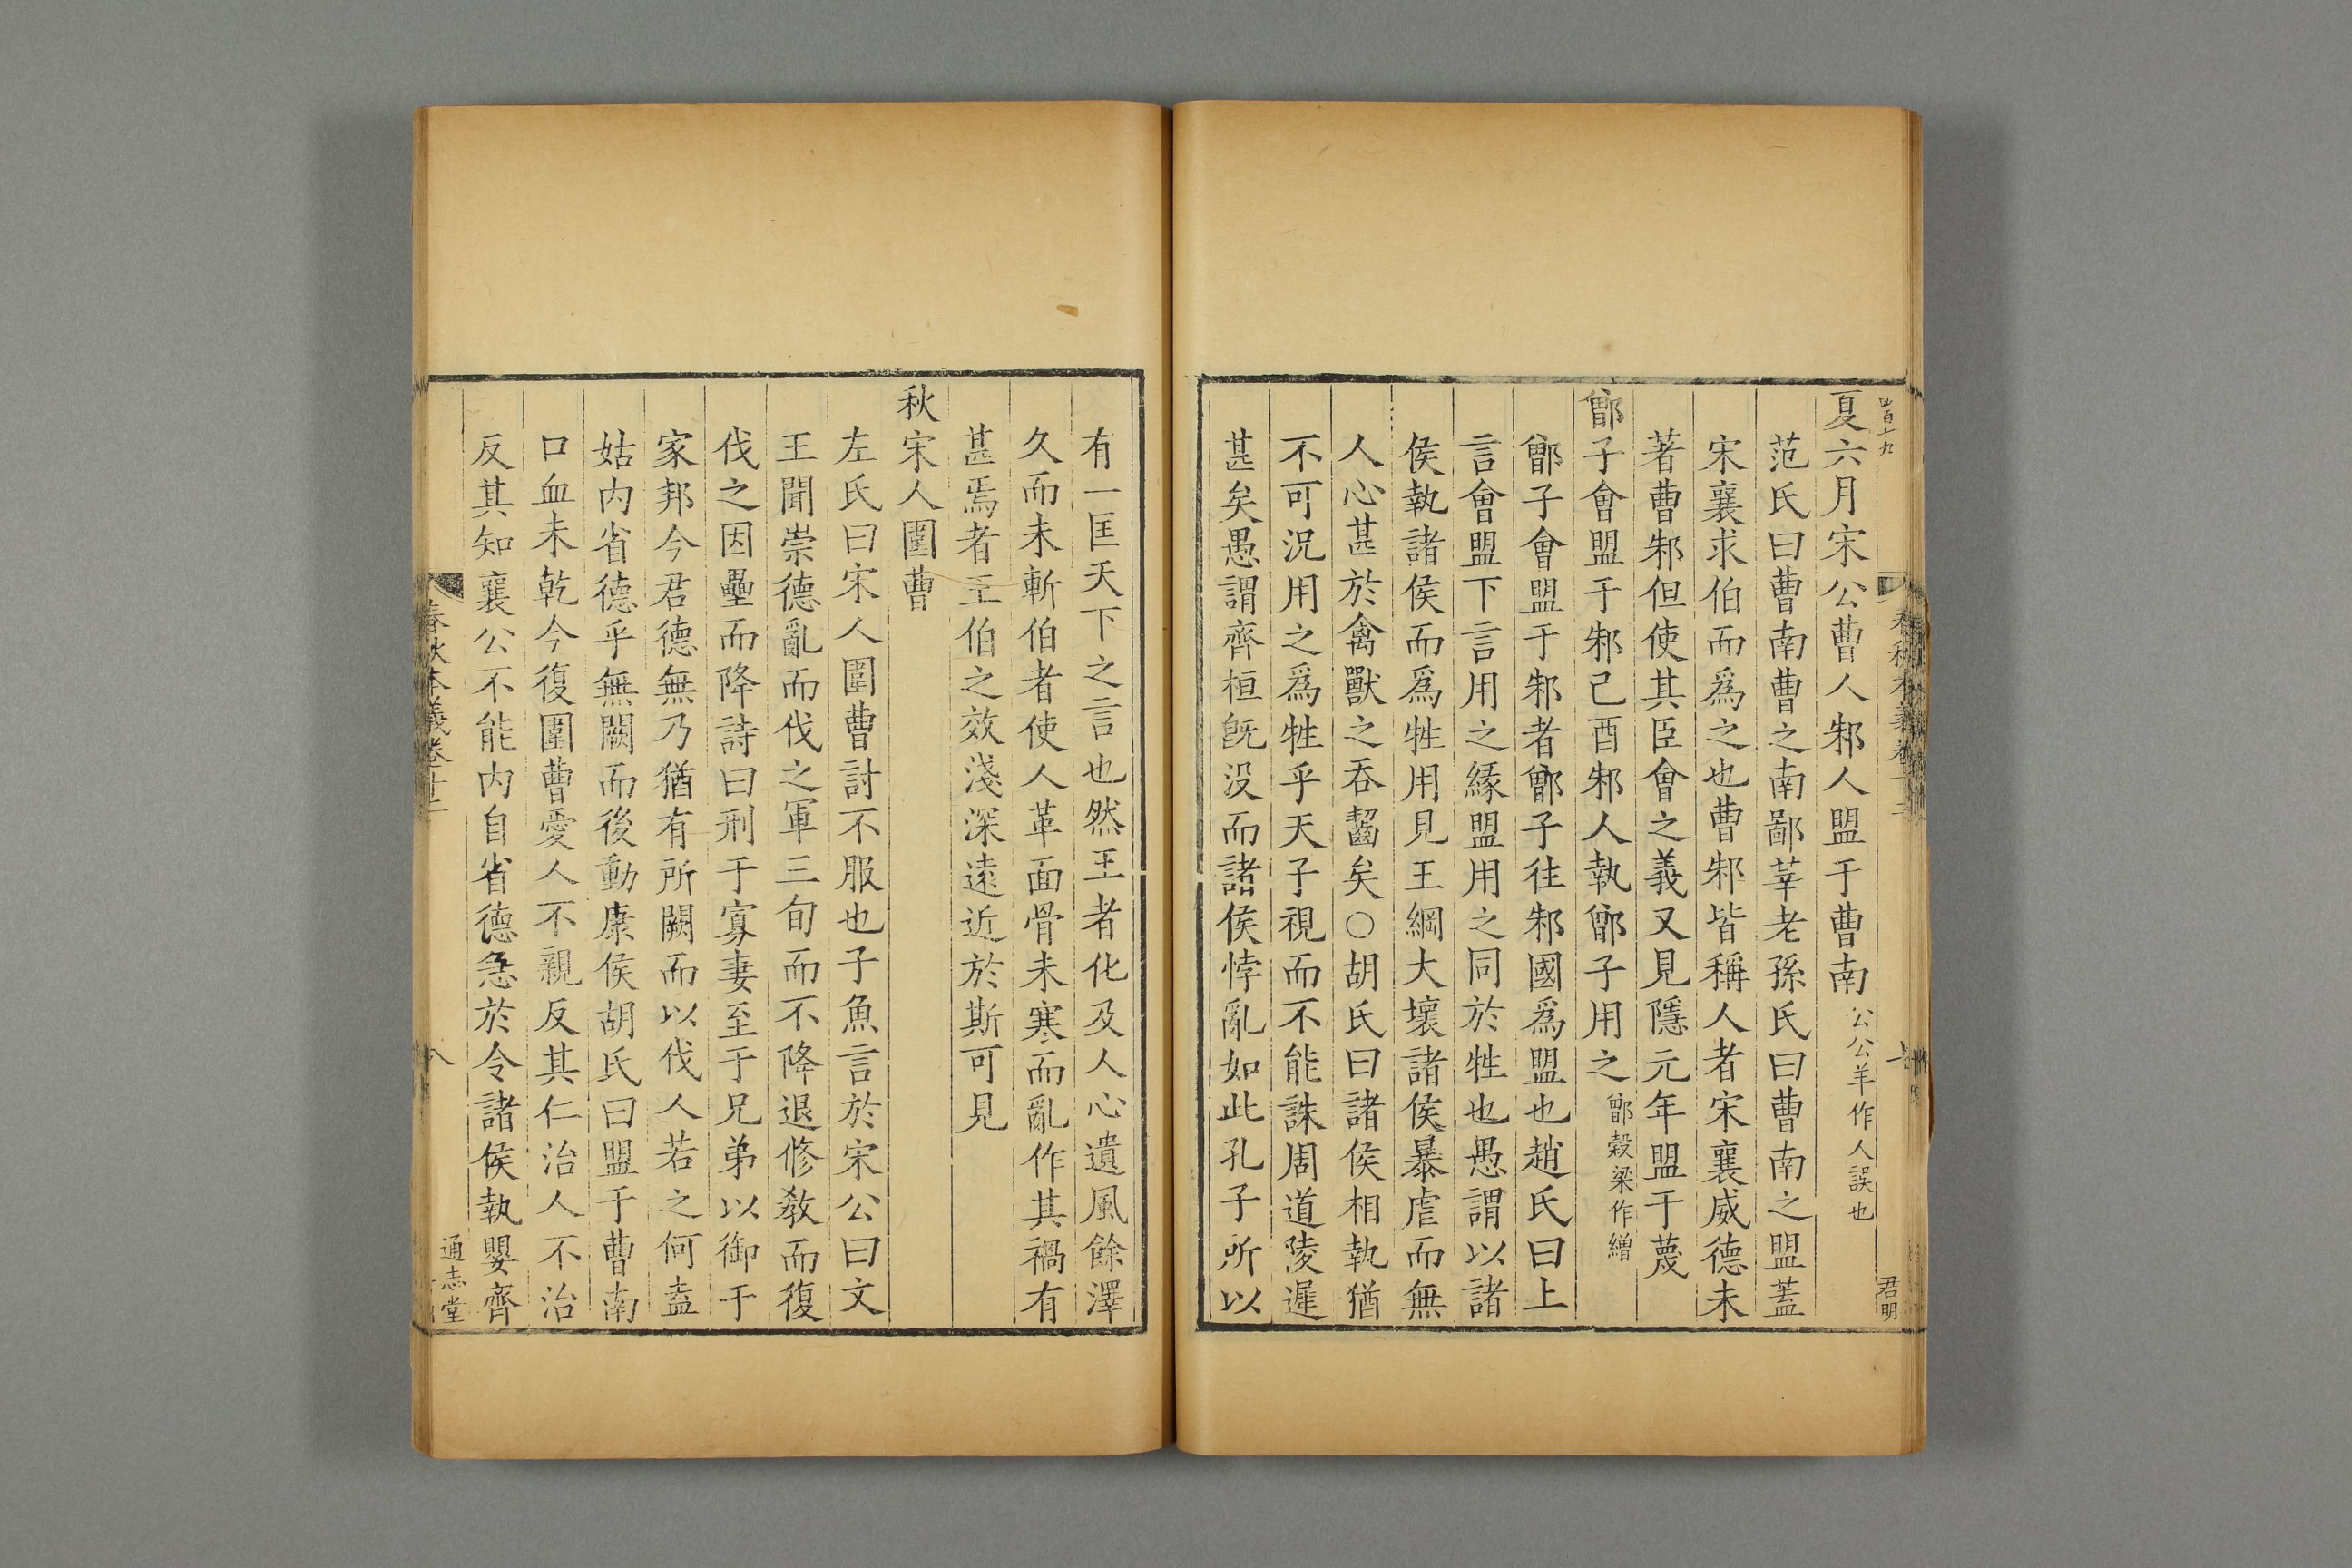 夏六月宋公曹人邾人盟于曹南公公羊作人誤也
范氏曰曹南曹之南鄙莘老孫氏曰曹南之盟蓋
宋襄求伯而爲之也曹邾皆稱人者宋襄威德未
著曹邾但使其臣會之義又見隱元年盟于蔑
鄫子會盟于邾己酉邾人執鄫子用之鄫穀梁作繒
鄫子會盟于邾者鄫子往邾國爲盟也趙氏曰上
言會盟下言用之緣盟用之同於牲也愚謂以諸
侯執諸侯而爲牲用見王綱大壞諸侯暴虐而無
人心甚於禽獸之吞齧矣○胡氏曰諸侯相執猶
不可況用之爲牲乎天子視而不能誅周道陵遲
甚矣愚謂齊桓旣没而諸侯悖亂如此孔子所以
有一匡天下之言也然王者化及人心遺風餘澤
久而未斬伯者使人革面骨未寒而亂作其禍有
甚焉者王伯之效淺深遠近於斯可見
秋宋人圍曹
左氏曰宋人圍曹討不服也子魚言於宋公曰文
王聞崇德亂而伐之軍三旬而不降退修教而復
伐之因壘而降詩曰刑于寡妻至于兄弟以御于
家邦今君德無乃猶有所闕而以伐人若之何盍
姑内省德乎無闕而後動康侯胡氏曰盟于曹南
口血未乾今復圍曹愛人不親反其仁治人不治
反其知襄公不能内自省德急於令諸侯執嬰齊
春秋本義卷十二
八
通志堂
四百十九
君明